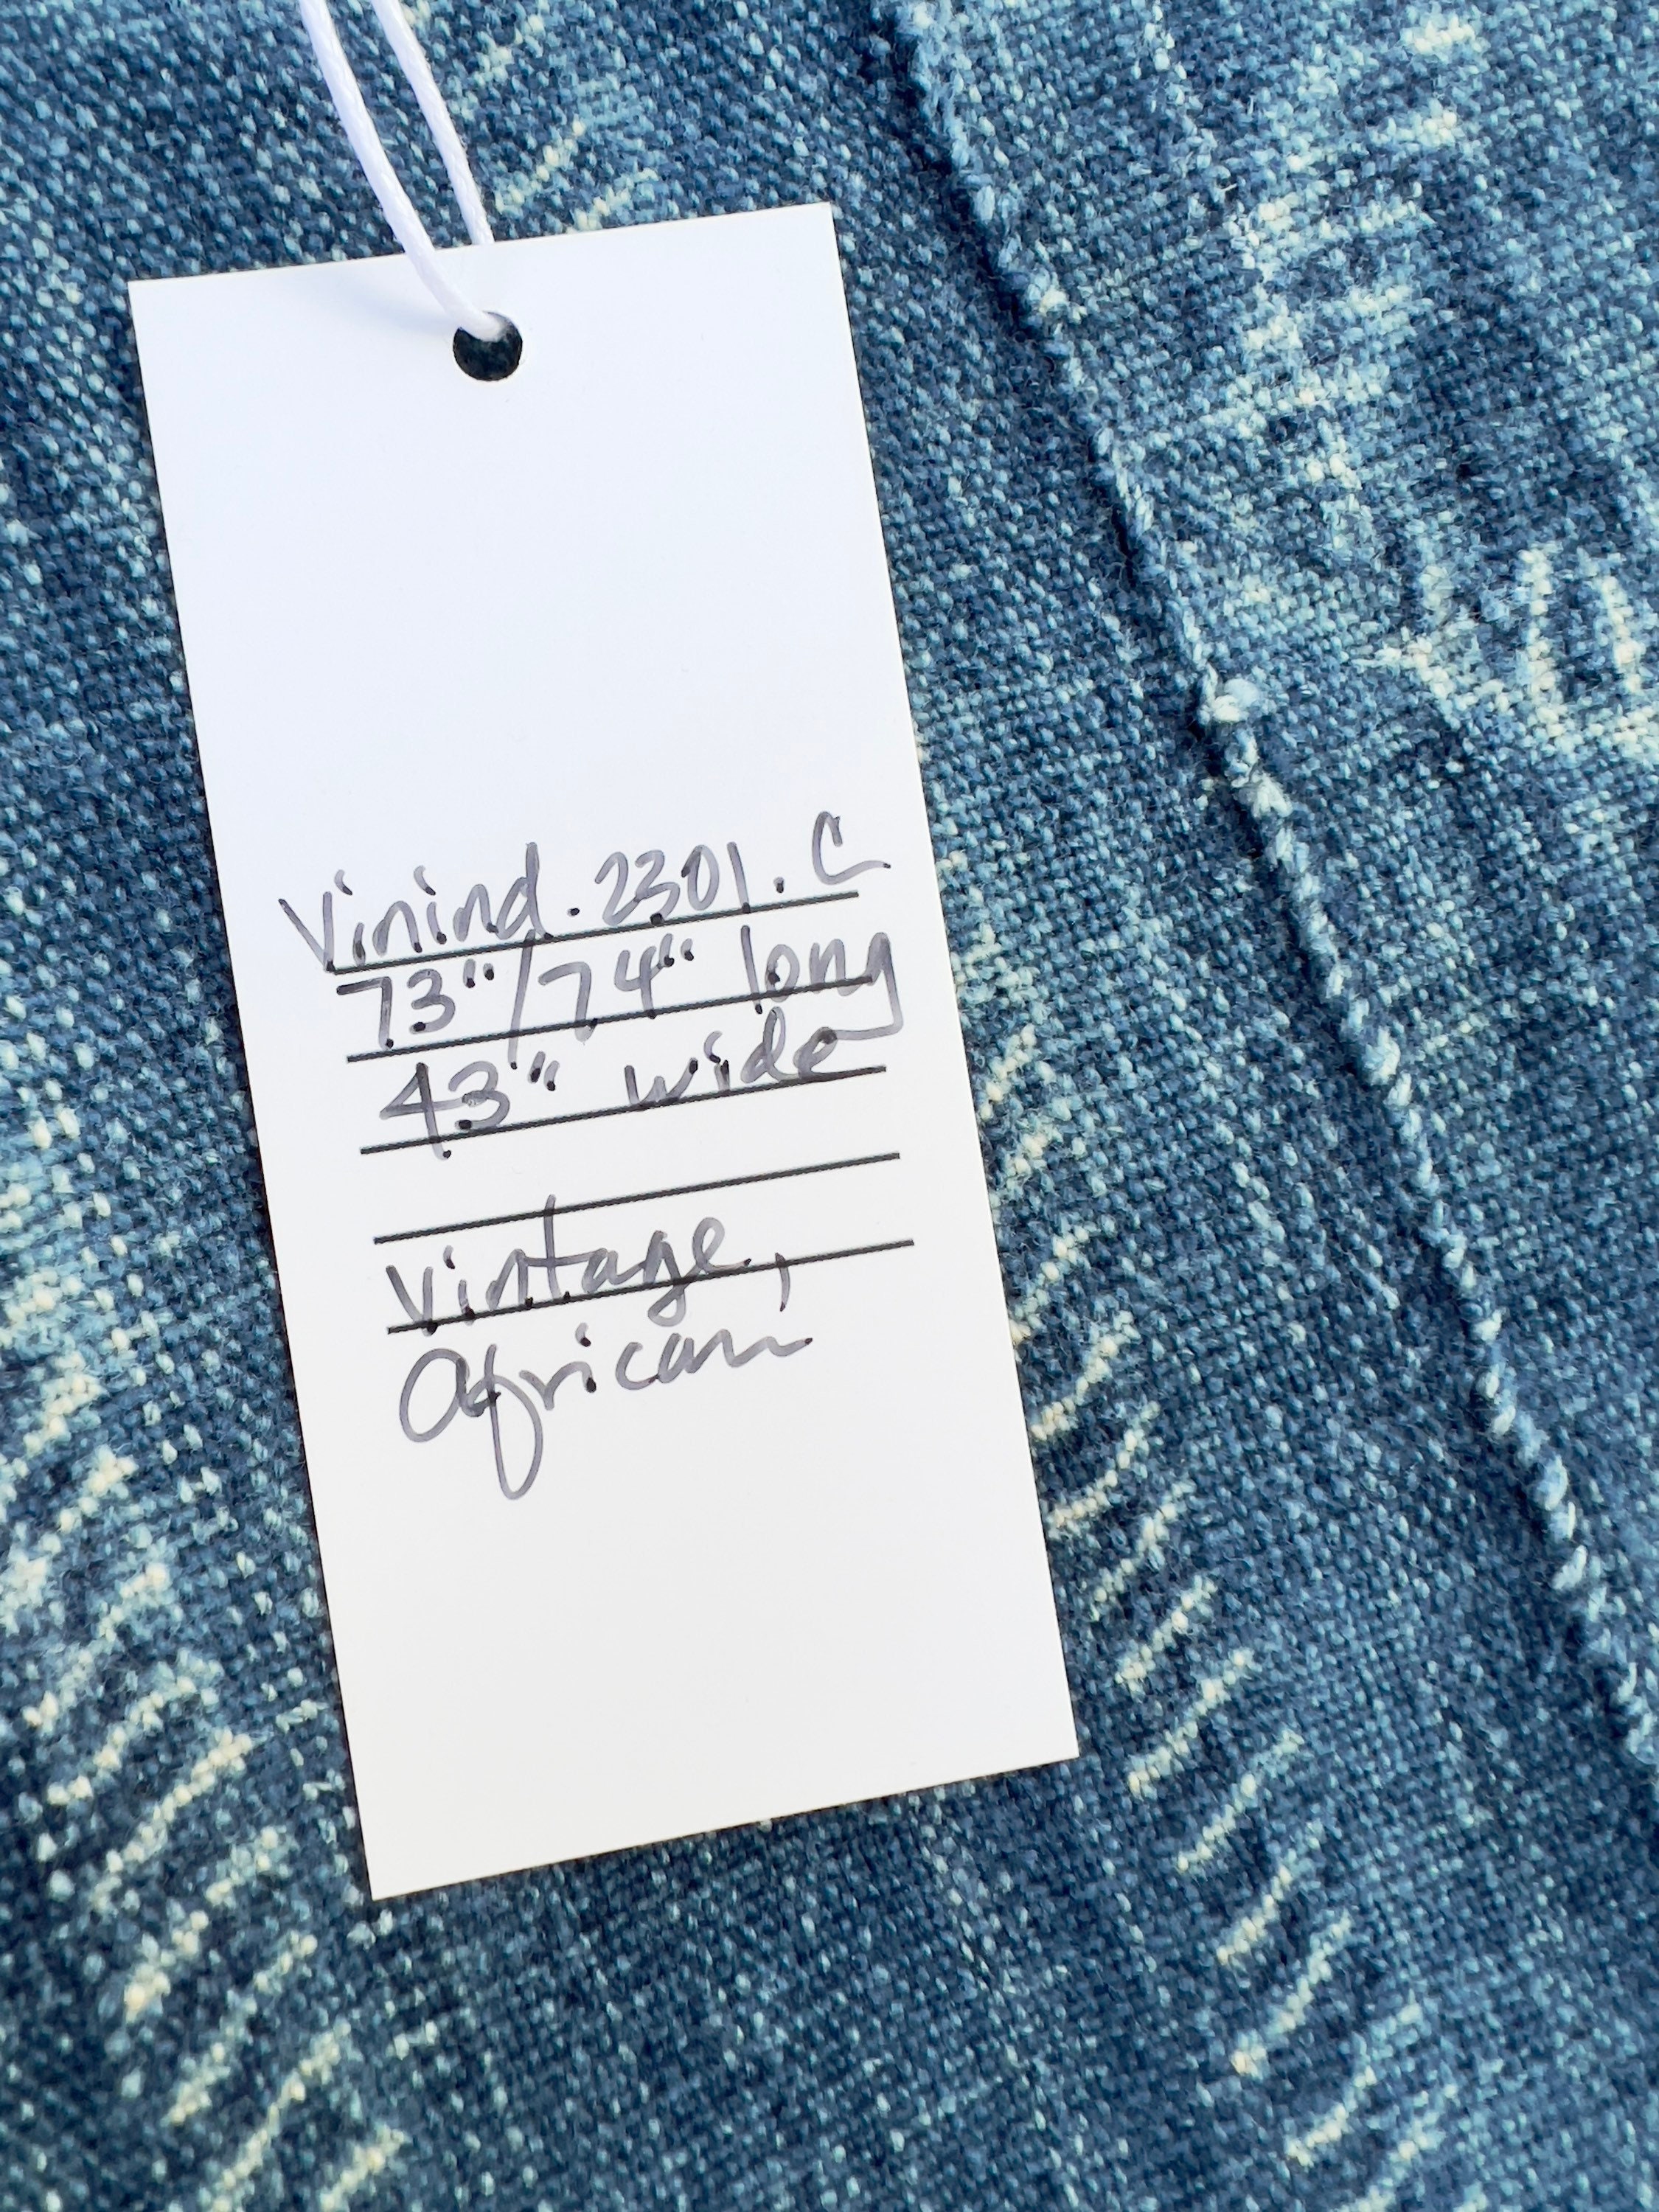 Vinind.2301.C
73"/74" long
43" wide
vintage,
African